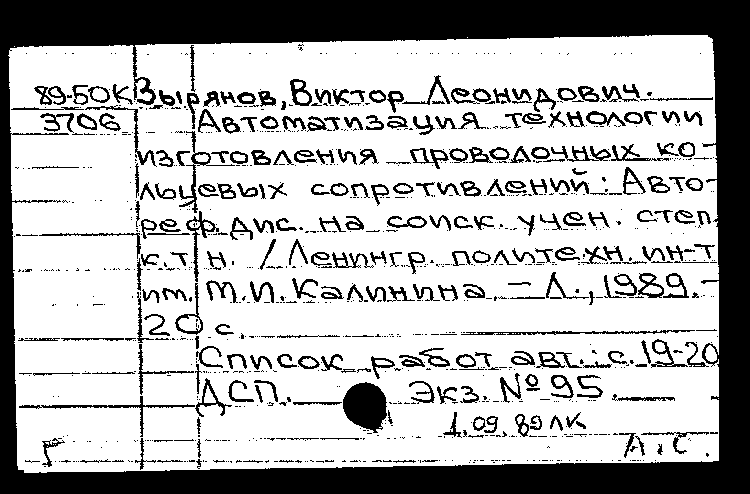 89-50К Зырянов, Виктор Леонидович.
3706 Автоматизация технологии
изготовления проволочных ко-
льцевых сопротивлений: Авто-
реф. дис. на соиск. учен. степ.
к.т.н. / Ленингр. политехн. ин-т
им. М.И. Калинина. – Л., 1989. –
20 с.
Список работ авт.: с. 19-20
ДСП. Экз. № 95.
1.09.89 ЛК
Г А.С.